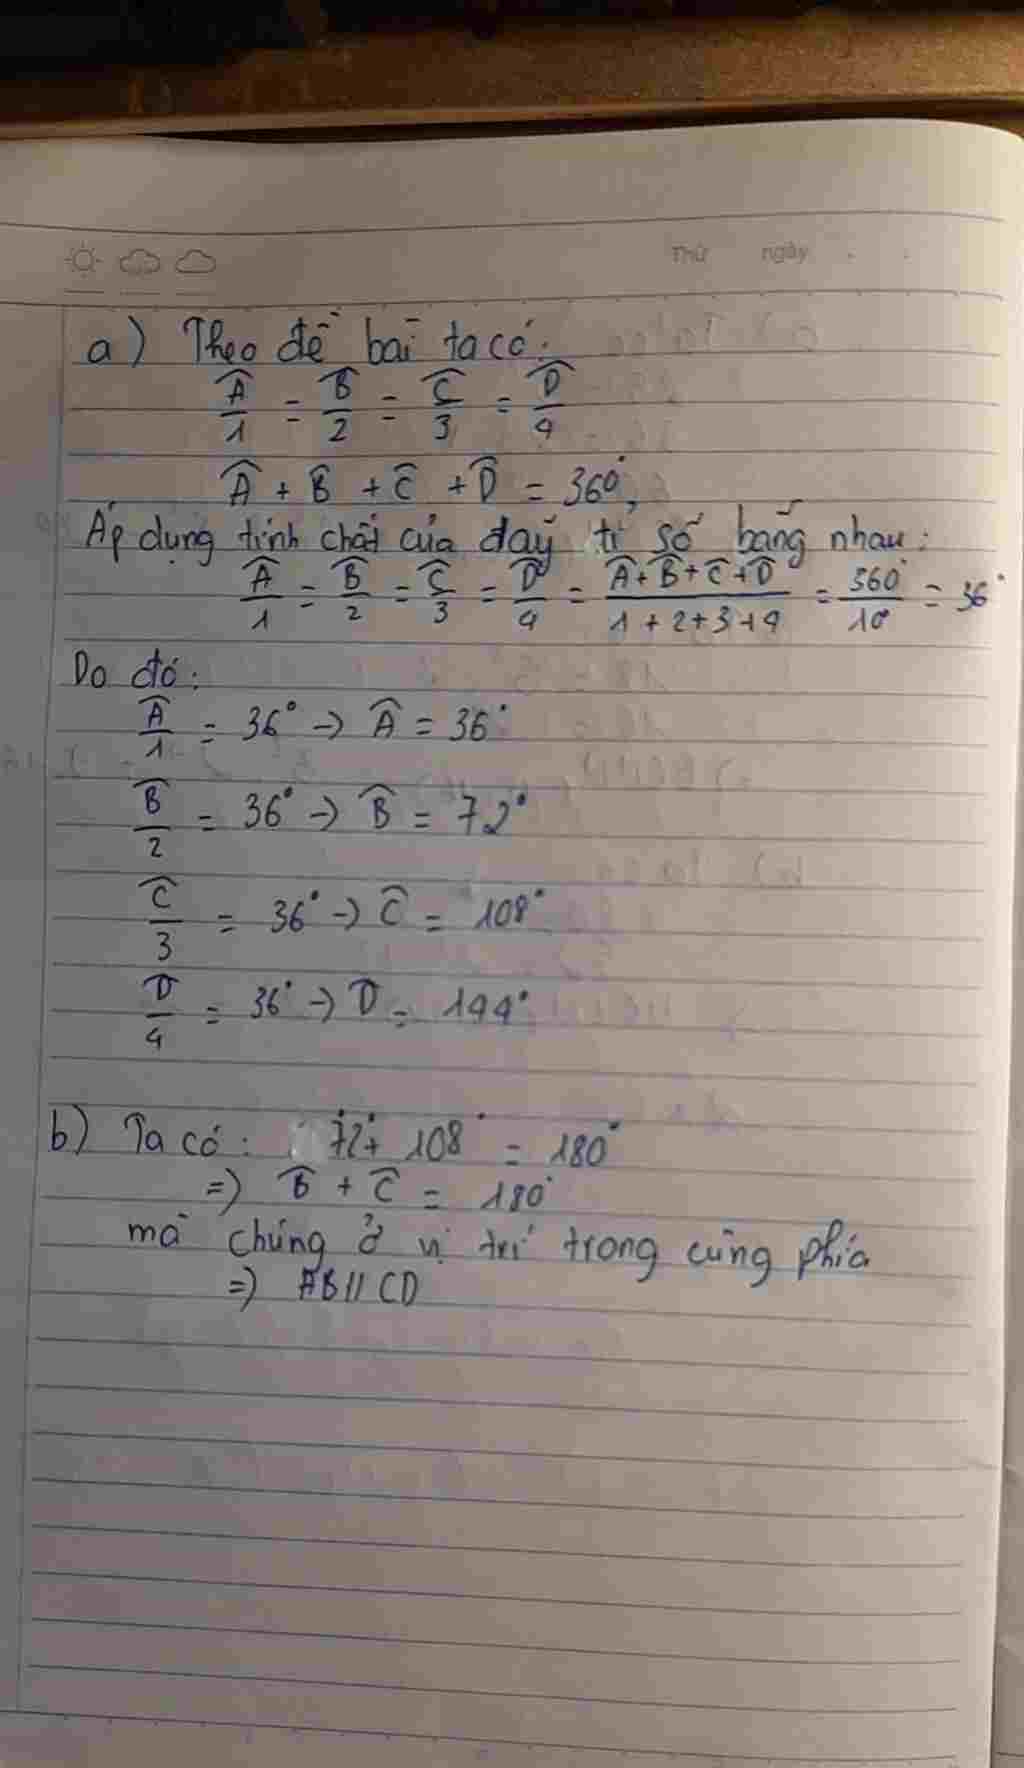 Thứ ngày
a) Theo đề bài ta có:
Â/1 = B̂/2 = Ĉ/3 = D̂/4
Â + B̂ + Ĉ + D̂ = 360°,
Áp dụng tính chất của dãy tỉ số bằng nhau:
Â/1 = B̂/2 = Ĉ/3 = D̂/4 = (Â+B̂+Ĉ+D̂)/(1+2+3+4) = 360°/10 = 36°
Do đó:
Â/1 = 36° → Â = 36°
B̂/2 = 36° → B̂ = 72°
Ĉ/3 = 36° → Ĉ = 108°
D̂/4 = 36° → D̂ = 144°
b) Ta có: 72° + 108° = 180°
=> B̂ + Ĉ = 180°
mà chúng ở vị trí trong cùng phía
=> AB // CD